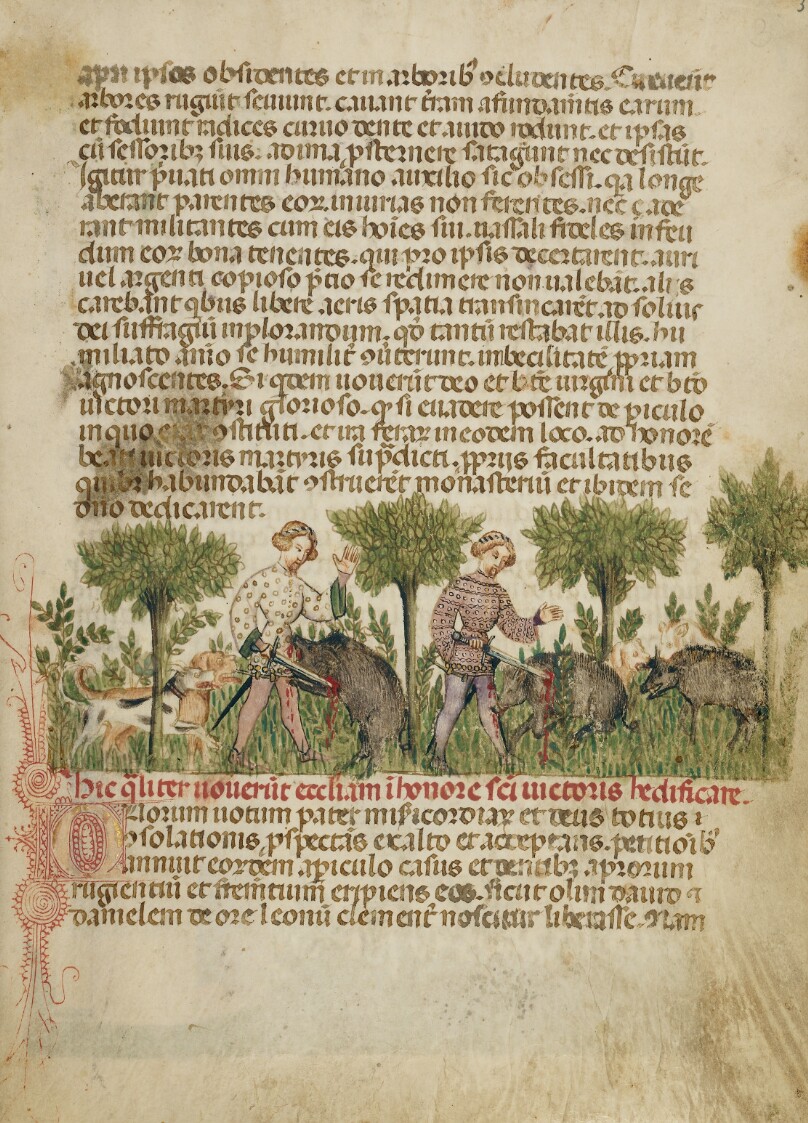 apri ipsos obsidentes et in arborib⁹ ɔcludentes. Circueūt
arbores rugiūt seuiunt. cauant t̄ram a fundam̄tis earum
et fodiunt radices curuo dente et auido rodunt. et ipsas
cū sessoribꝫ suis. ad ima ꝓsternere satagūt nec desistūt.
Igitur p̄uati omni humano auxilio sic obsessi. qa longe
aberant parentes eoꝝ. iniurias non ferentes. nec
rant militantes cum eis hoīes sui. uassali fideles in feu
dum eoꝝ bona tenentes. qui pro ipsis decertarent. auri
uel argenti copioso p̄tio se redimere non ualebāt. alis
carebānt qbus libere aeris spatia transmearēt. ad soliuɜ
dei suffragiū inplorandum. qd̄ tantū restabat illis. hu
miliato aīo se humilit̄ ɔuterunt. imbecilitatē ꝓpriam
agnoscentes. Siqdem uouerūt deo et b̄te uirgīni et b̄to
uictori martyri glorioso. qɜ si euadere possent de piculo
in quo ɔstituti. et ira feraꝝ in eodem loco. ad honorē
beati uictoris martyris sup̄dicti. ꝓpriis facultatibus
quibꝫ habundabāt ɔstruerēt monasteriū et ibidem se
dn̄o dedicarent.
hic qͥliter uouerūt eccl̄iam ī honore sc̄i uictoris hedificare.
Quorum uotum pater mīsicordiaꝝ et deus totius
ɔsolationis, ꝓspectās ex alto et acceptans. petitioīb⁹
annuit eorūdem a piculo casus et dentibꝫ aprorum
rugientiū et frem̄tium eripiens eos. sicut olim dauid ⁊
danielem de ore leonū clement̄ noscitur liberasse. Nam